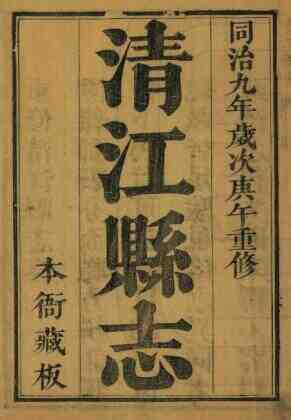 同治九年歲次庚午重修
清江縣志
本衙藏板